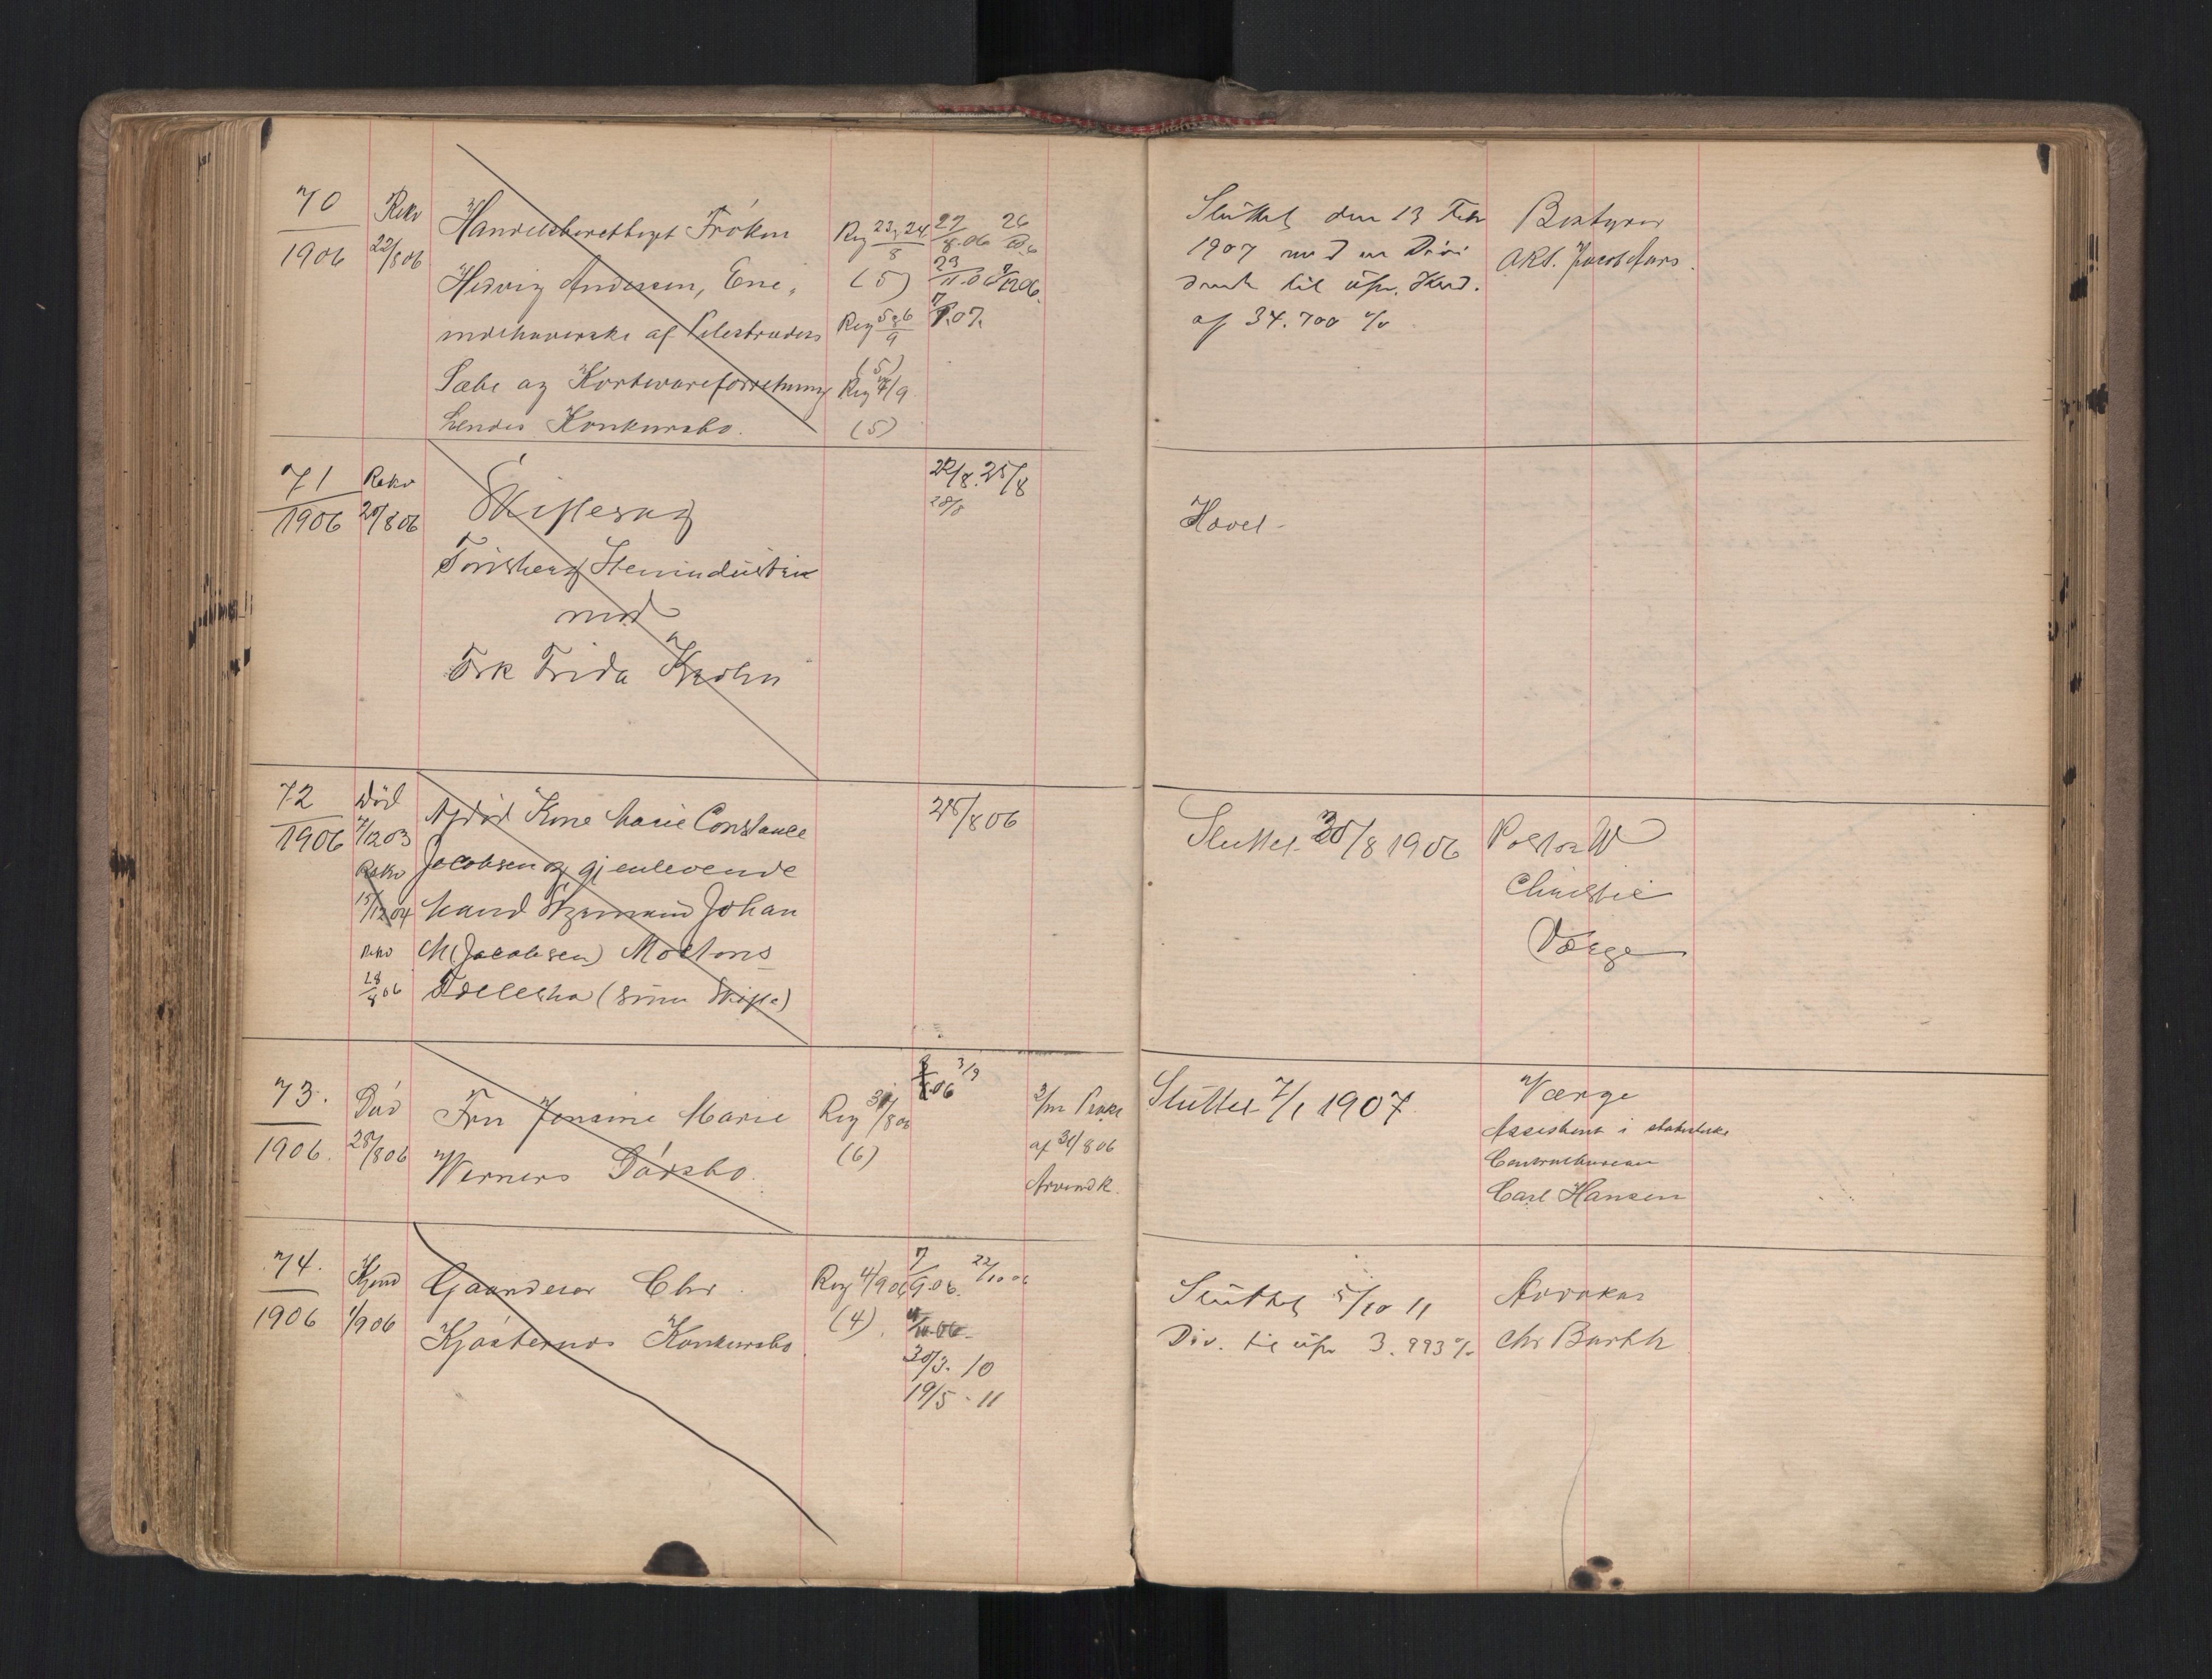 70
1906
Rekv
22/8 06
Handelsberettiget Frøken
Hedvig Andersen, Ene,
indehaverske af Pilestrædets
Sæbe og Kortevareforretning
hendes Konkursbo.
Reg 23, 24/8
(5)
Reg 5 & 6/9
(5)
Reg 7/9
(5)
27/8.06
7/1.07.
Sluttet den 13 Feb
1907 med en Divi
dende til upr. Kred.
af 34.700 %
Bestyrer
Jacob Aars.
71
1906
Rekv
20/8 06
Skiftesag
Tønsberg Stenindustri
mod
Frk Frida Krohn
22/8. 25/8
28/8
Hævet
72
1906
Død
7/12 03
Rekv
15/12 04
Rekv
28/8 06
Afdød Kone Marie Constance
Jacobsen og gjenlevende
Mand Johan
M (Jacobsen) Moltons
Fællesbo (Skifte)
28/8 06
Sluttet 30/8 1906
Pastor W
Christie
Værge
73.
1906.
Død
28/8 06
Fru Jensine Marie
Werners Dødsbo.
Reg 31/8 06
(6)
3/9
3/m Prokl
af 31/8 06
Sluttet 7/1 1907.
Værge
Assistent i statistiske
Centralbureau
Carl Hansen
74.
1906
Kjend
1/9 06
Gaardeier Chr.
Kjøsternds Konkursbo
Reg 4/9 06
(4).
7/9 06.
22/10 06
30/3. 10
19/5 - 11
Sluttet 5/10 11
Div. til upr 3.993 %
Advokat
Chr Barth